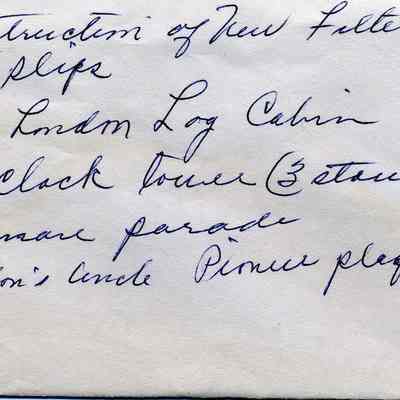 truction of New Filte
slips
London Log Cabin
Clock tower (3 stau
mare parade
on's Uncle Pioneer plaq